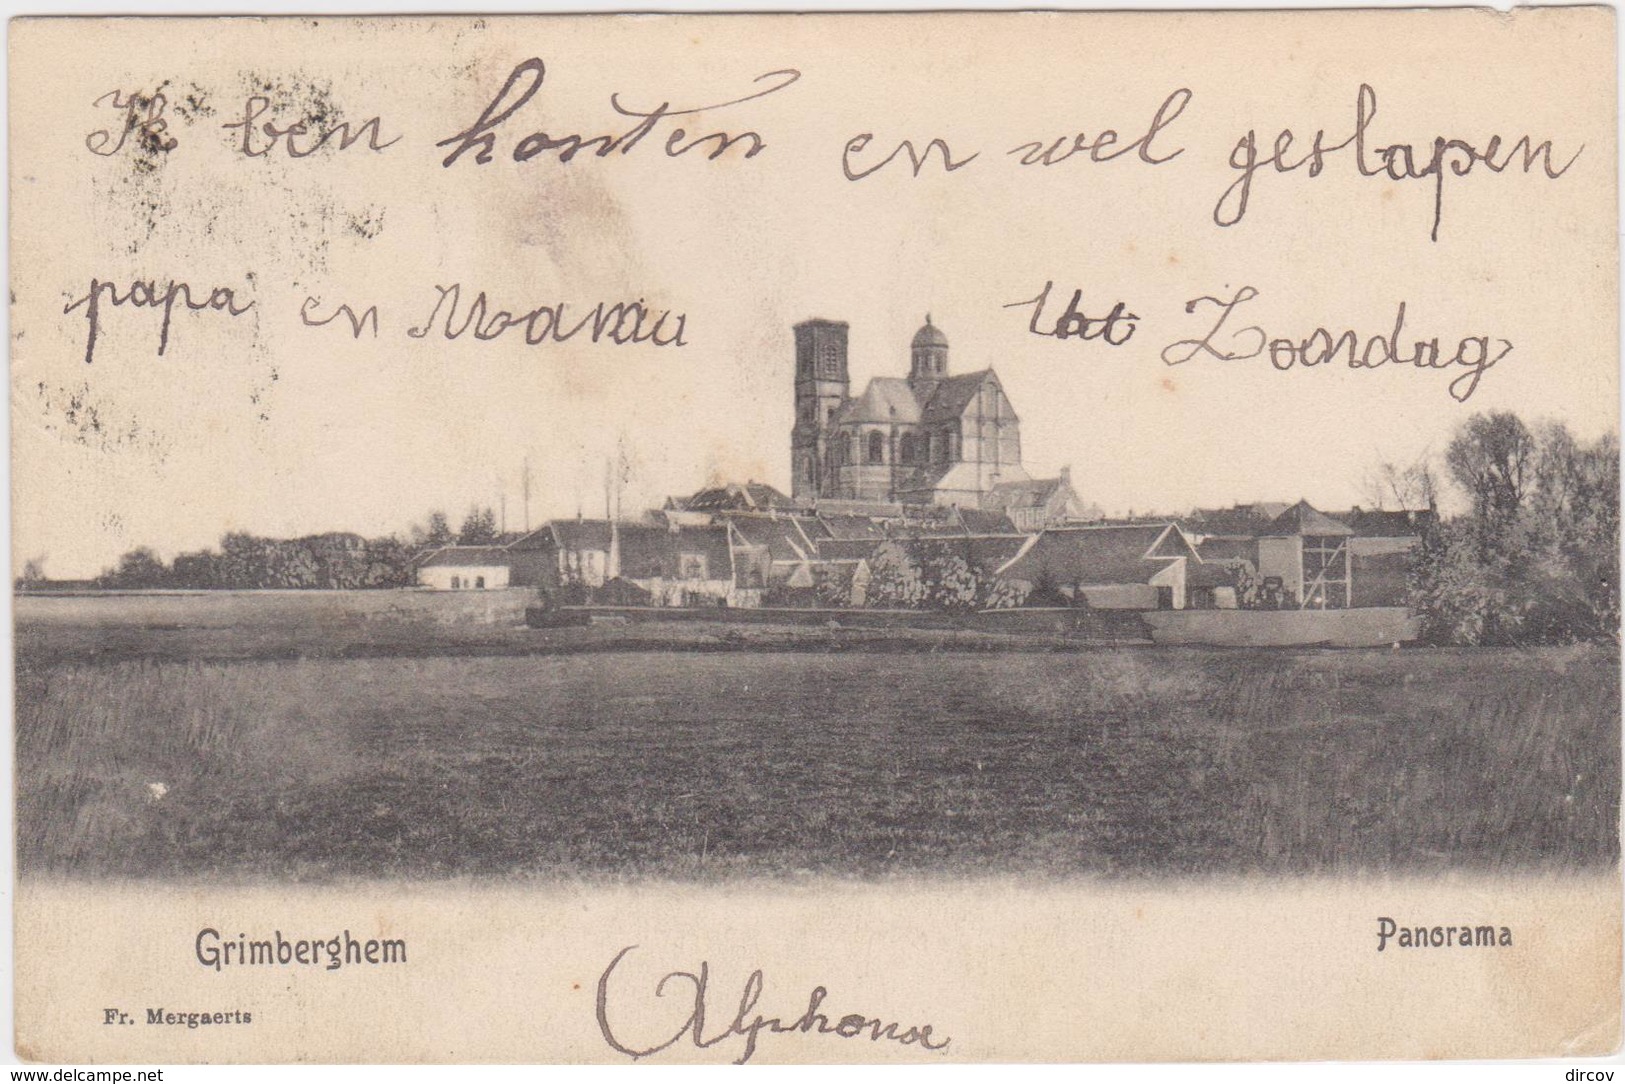 Ik ben honten en wel geslapen
papa en Maman tot Zondag
Grimberghem
Panorama
Fr. Mergaerts
Alphonse
www.delcampe.net
dircov